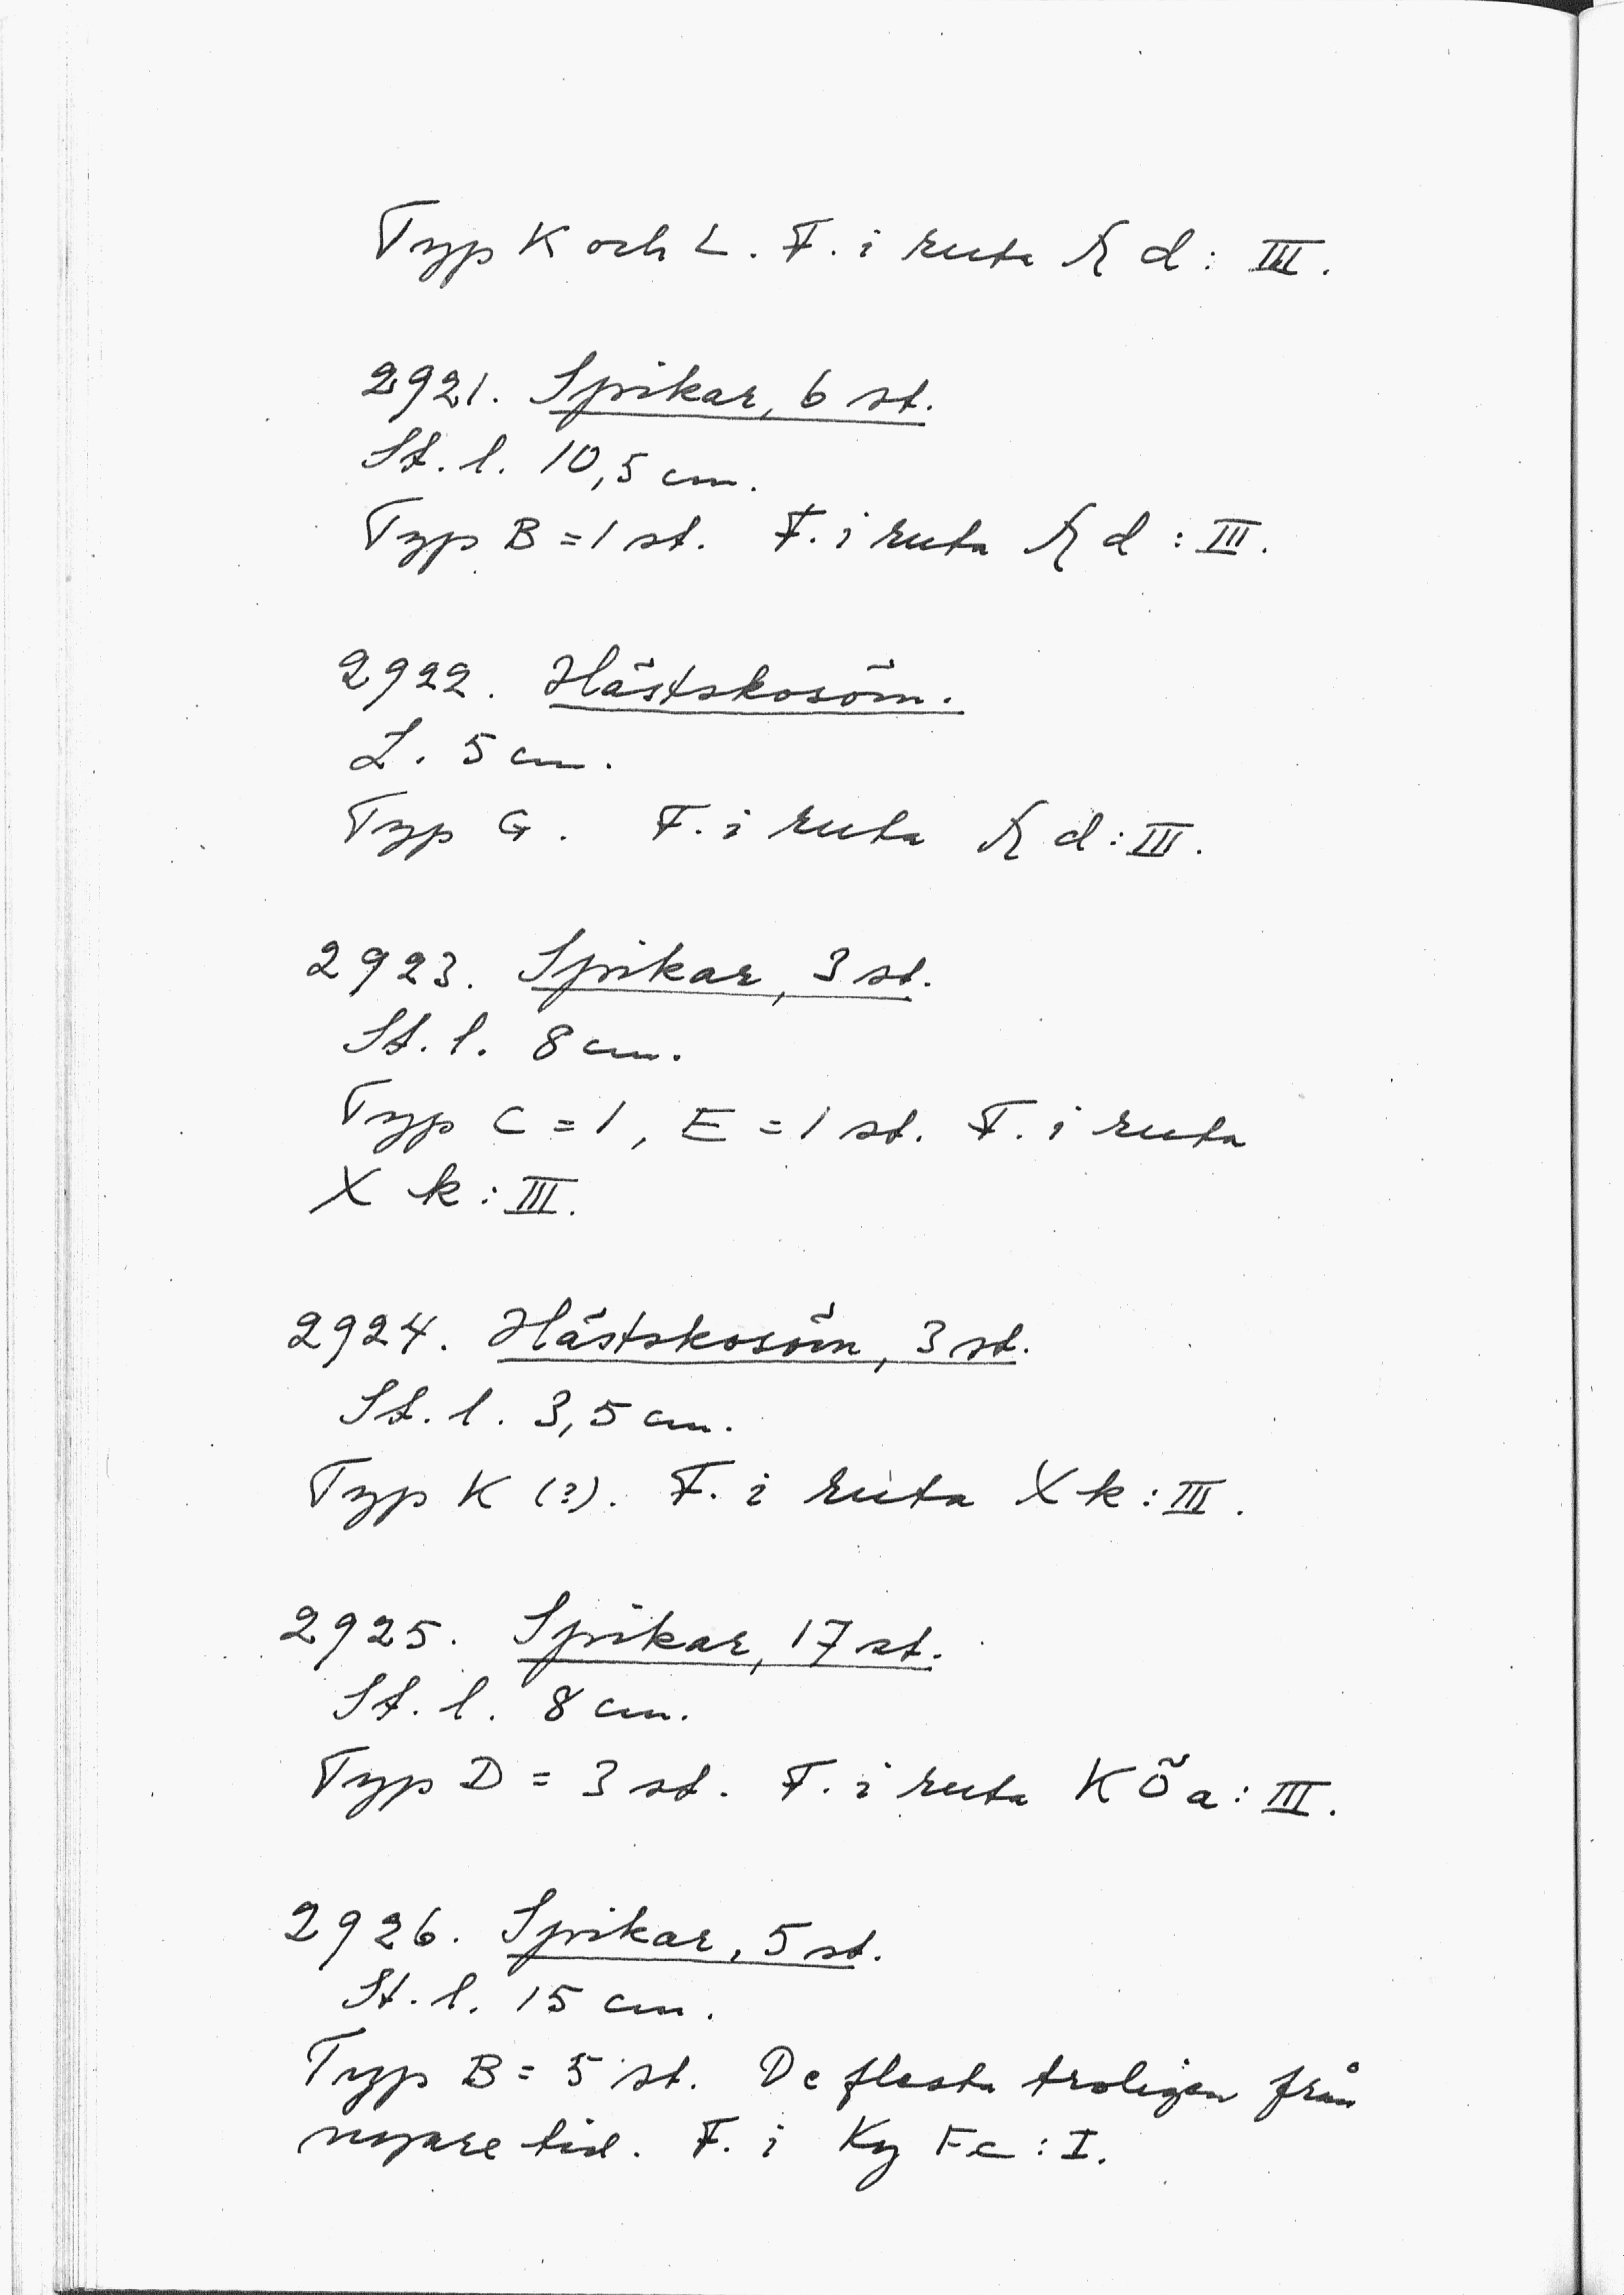 Typ K och L. F. i ruta Æ d: III.
2921. Spikar, 6 st.
St. l. 10,5 cm.
Typ B = 1 st. F. i ruta Æ d: III.
2922. Hästskosöm.
L. 5 cm.
Typ G. F. i ruta Æ d: III.
2923. Spikar, 3 st.
St. l. 8 cm.
Typ C = 1, E = 1 st. F. i ruta
X k: III.
2924. Hästskosöm, 3 st.
St. l. 3,5 cm.
Typ K (?). F. i ruta X k: III.
2925. Spikar, 17 st.
St. l. 8 cm.
Typ D = 3 st. F. i ruta K Ö a: III.
2926. Spikar, 5 st.
St. l. 15 cm.
Typ B = 5 st. De flesta troligen från
nyare tid. F. i Ky F c: I.